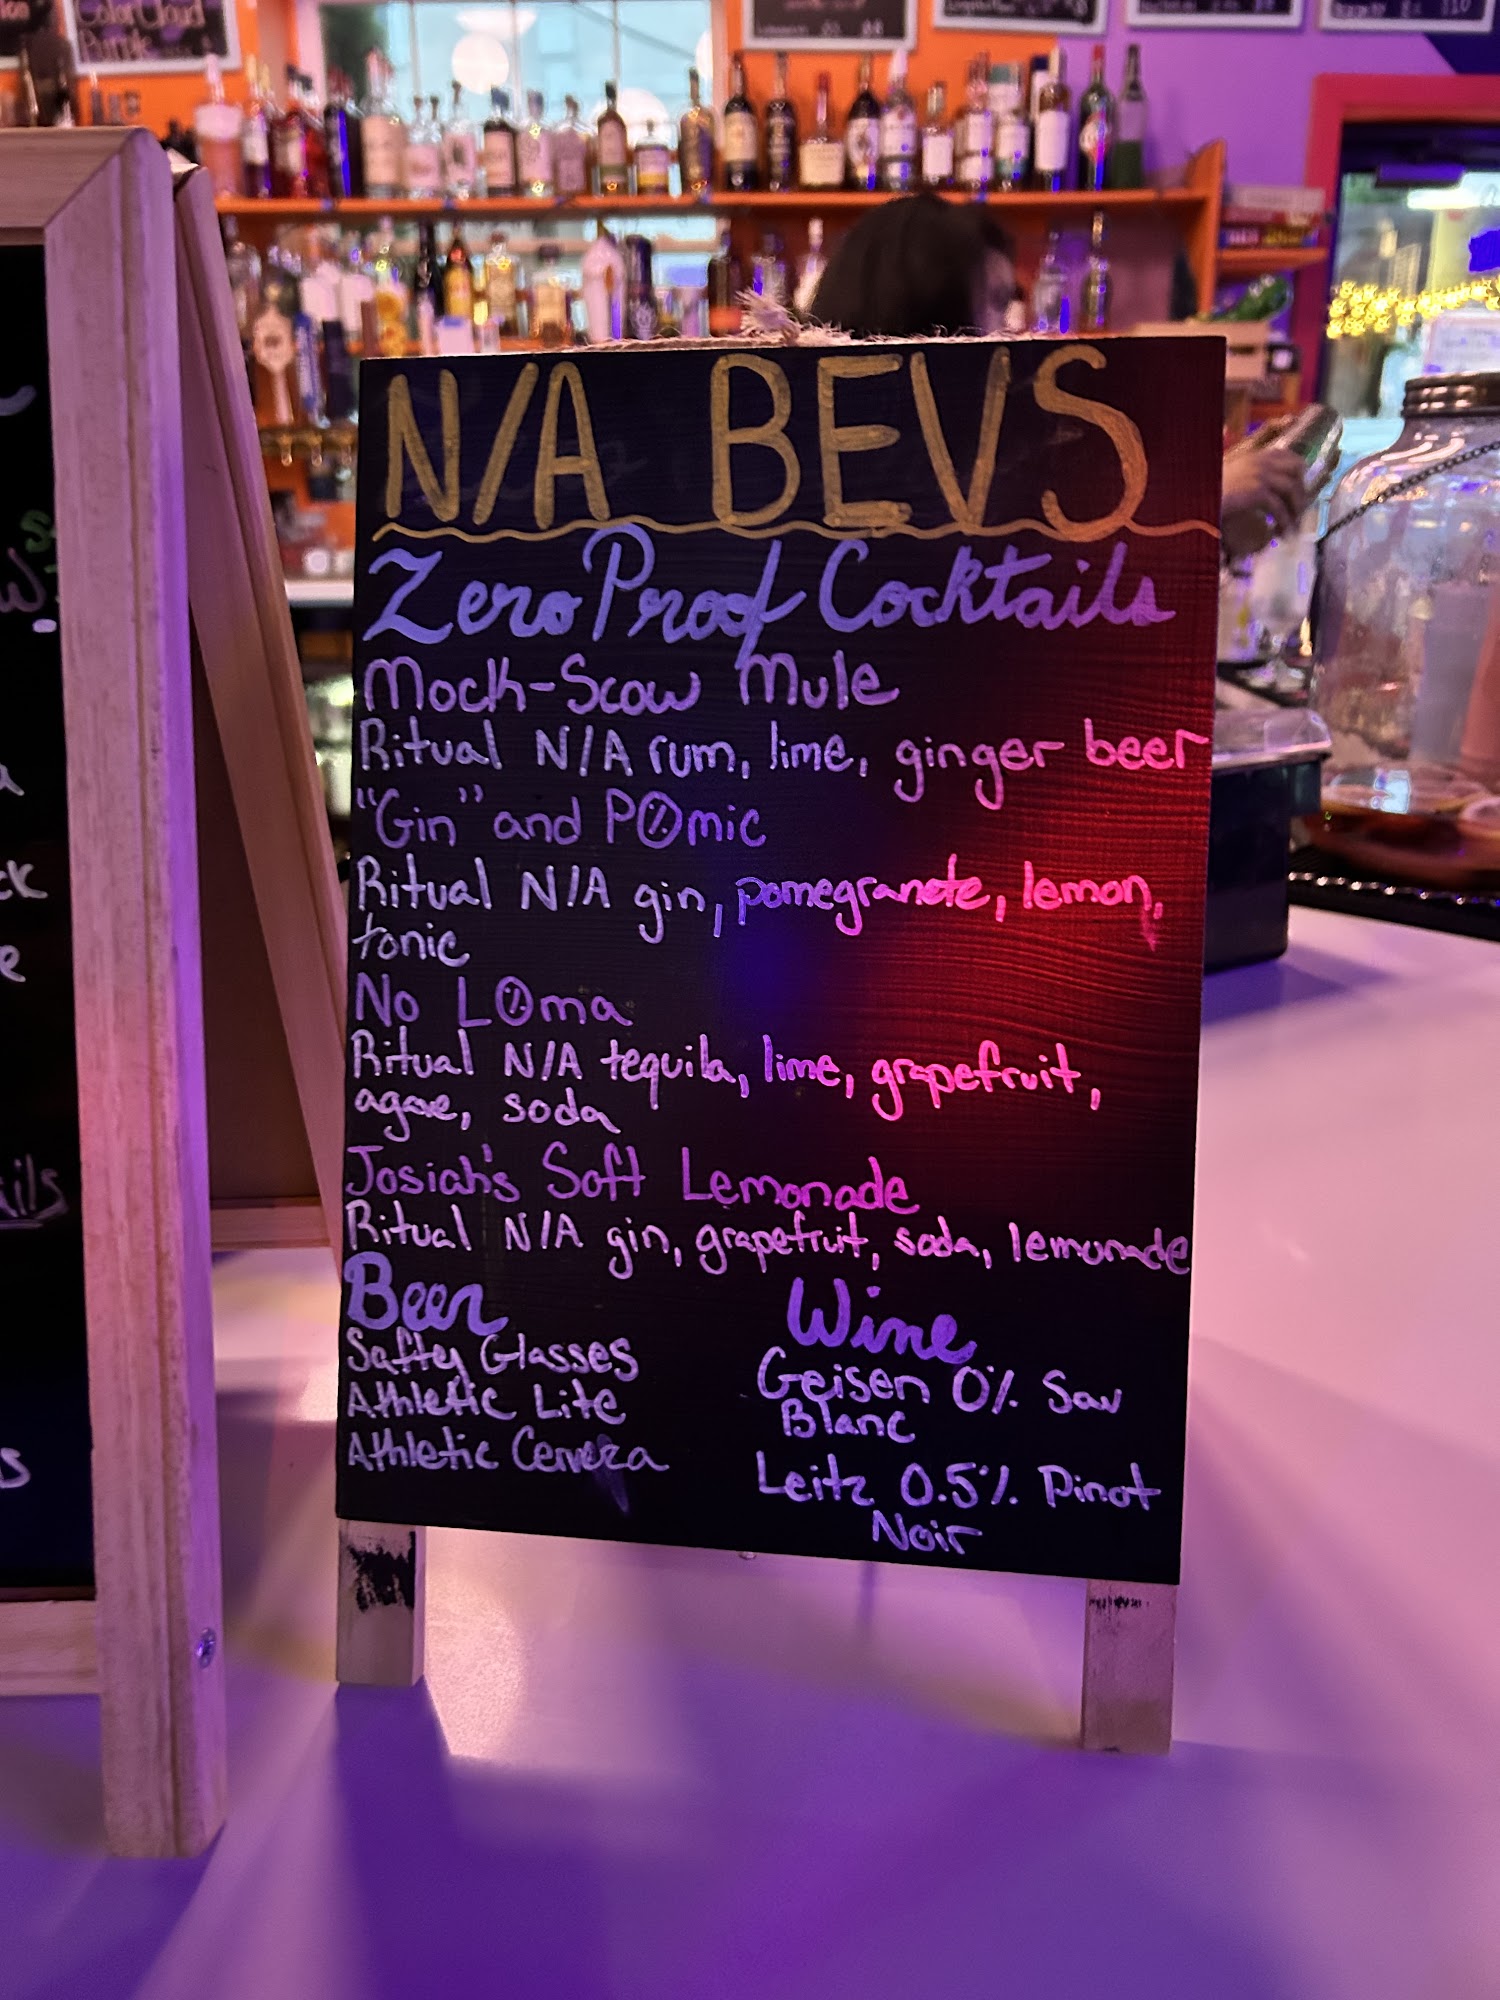 Color Cloud
Purple
N/A BEVS
Zero Proof Cocktails
Mock-Scow Mule
Ritual N/A rum, lime, ginger beer
"Gin" and P0%mic
Ritual N/A gin, pomegranate, lemon,
tonic
No L0%ma
Ritual N/A tequila, lime, grapefruit,
agave, soda
Josiah's Soft Lemonade
Ritual N/A gin, grapefruit, soda, lemonade
Beer
Safty Glasses
Athletic Lite
Athletic Cerveza
Wine
Geisen 0% Sav
Blanc
Leitz 0.5% Pinot
Noir